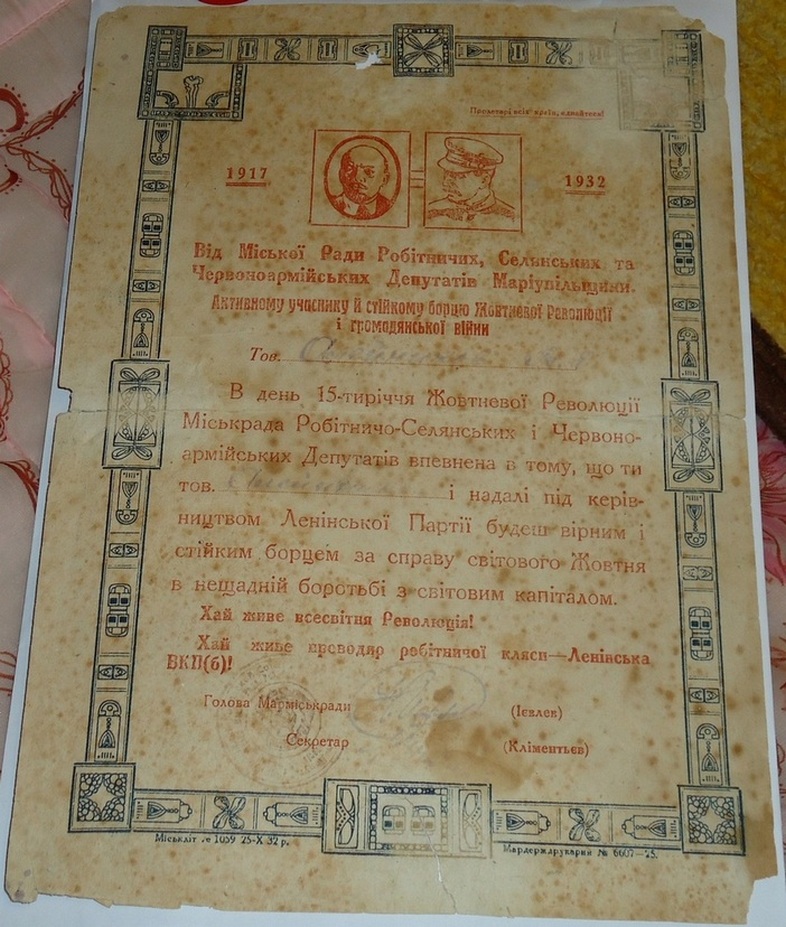 Пролетарі всіх країн, єднайтеся!
1917
1932
Від Міської Ради Робітничих, Селянських та
Червоноармійських Депутатів Маріупільщини.
Активному учаснику й стійкому борцю Жовтневої Революції
і громадянської війни
Тов.
В день 15-тиріччя Жовтневої Революції
Міськрада Робітничо-Селянських і Червоно-
армійських Депутатів впевнена в тому, що ти
тов. і надалі під керів-
ництвом Ленінської Партії будеш вірним і
стійким борцем за справу світового Жовтня
в нещадній боротьбі з світовим капіталом.
Хай живе всесвітня Революція!
Хай живе проводир робітничої кляси—Ленінська
ВКП(б)!
Голова Марміськради (Ієвлев)
Секретар (Кліментьєв)
Міськліт № 1059 25-X 32 р.
Мардержрукарня № 6607—25.